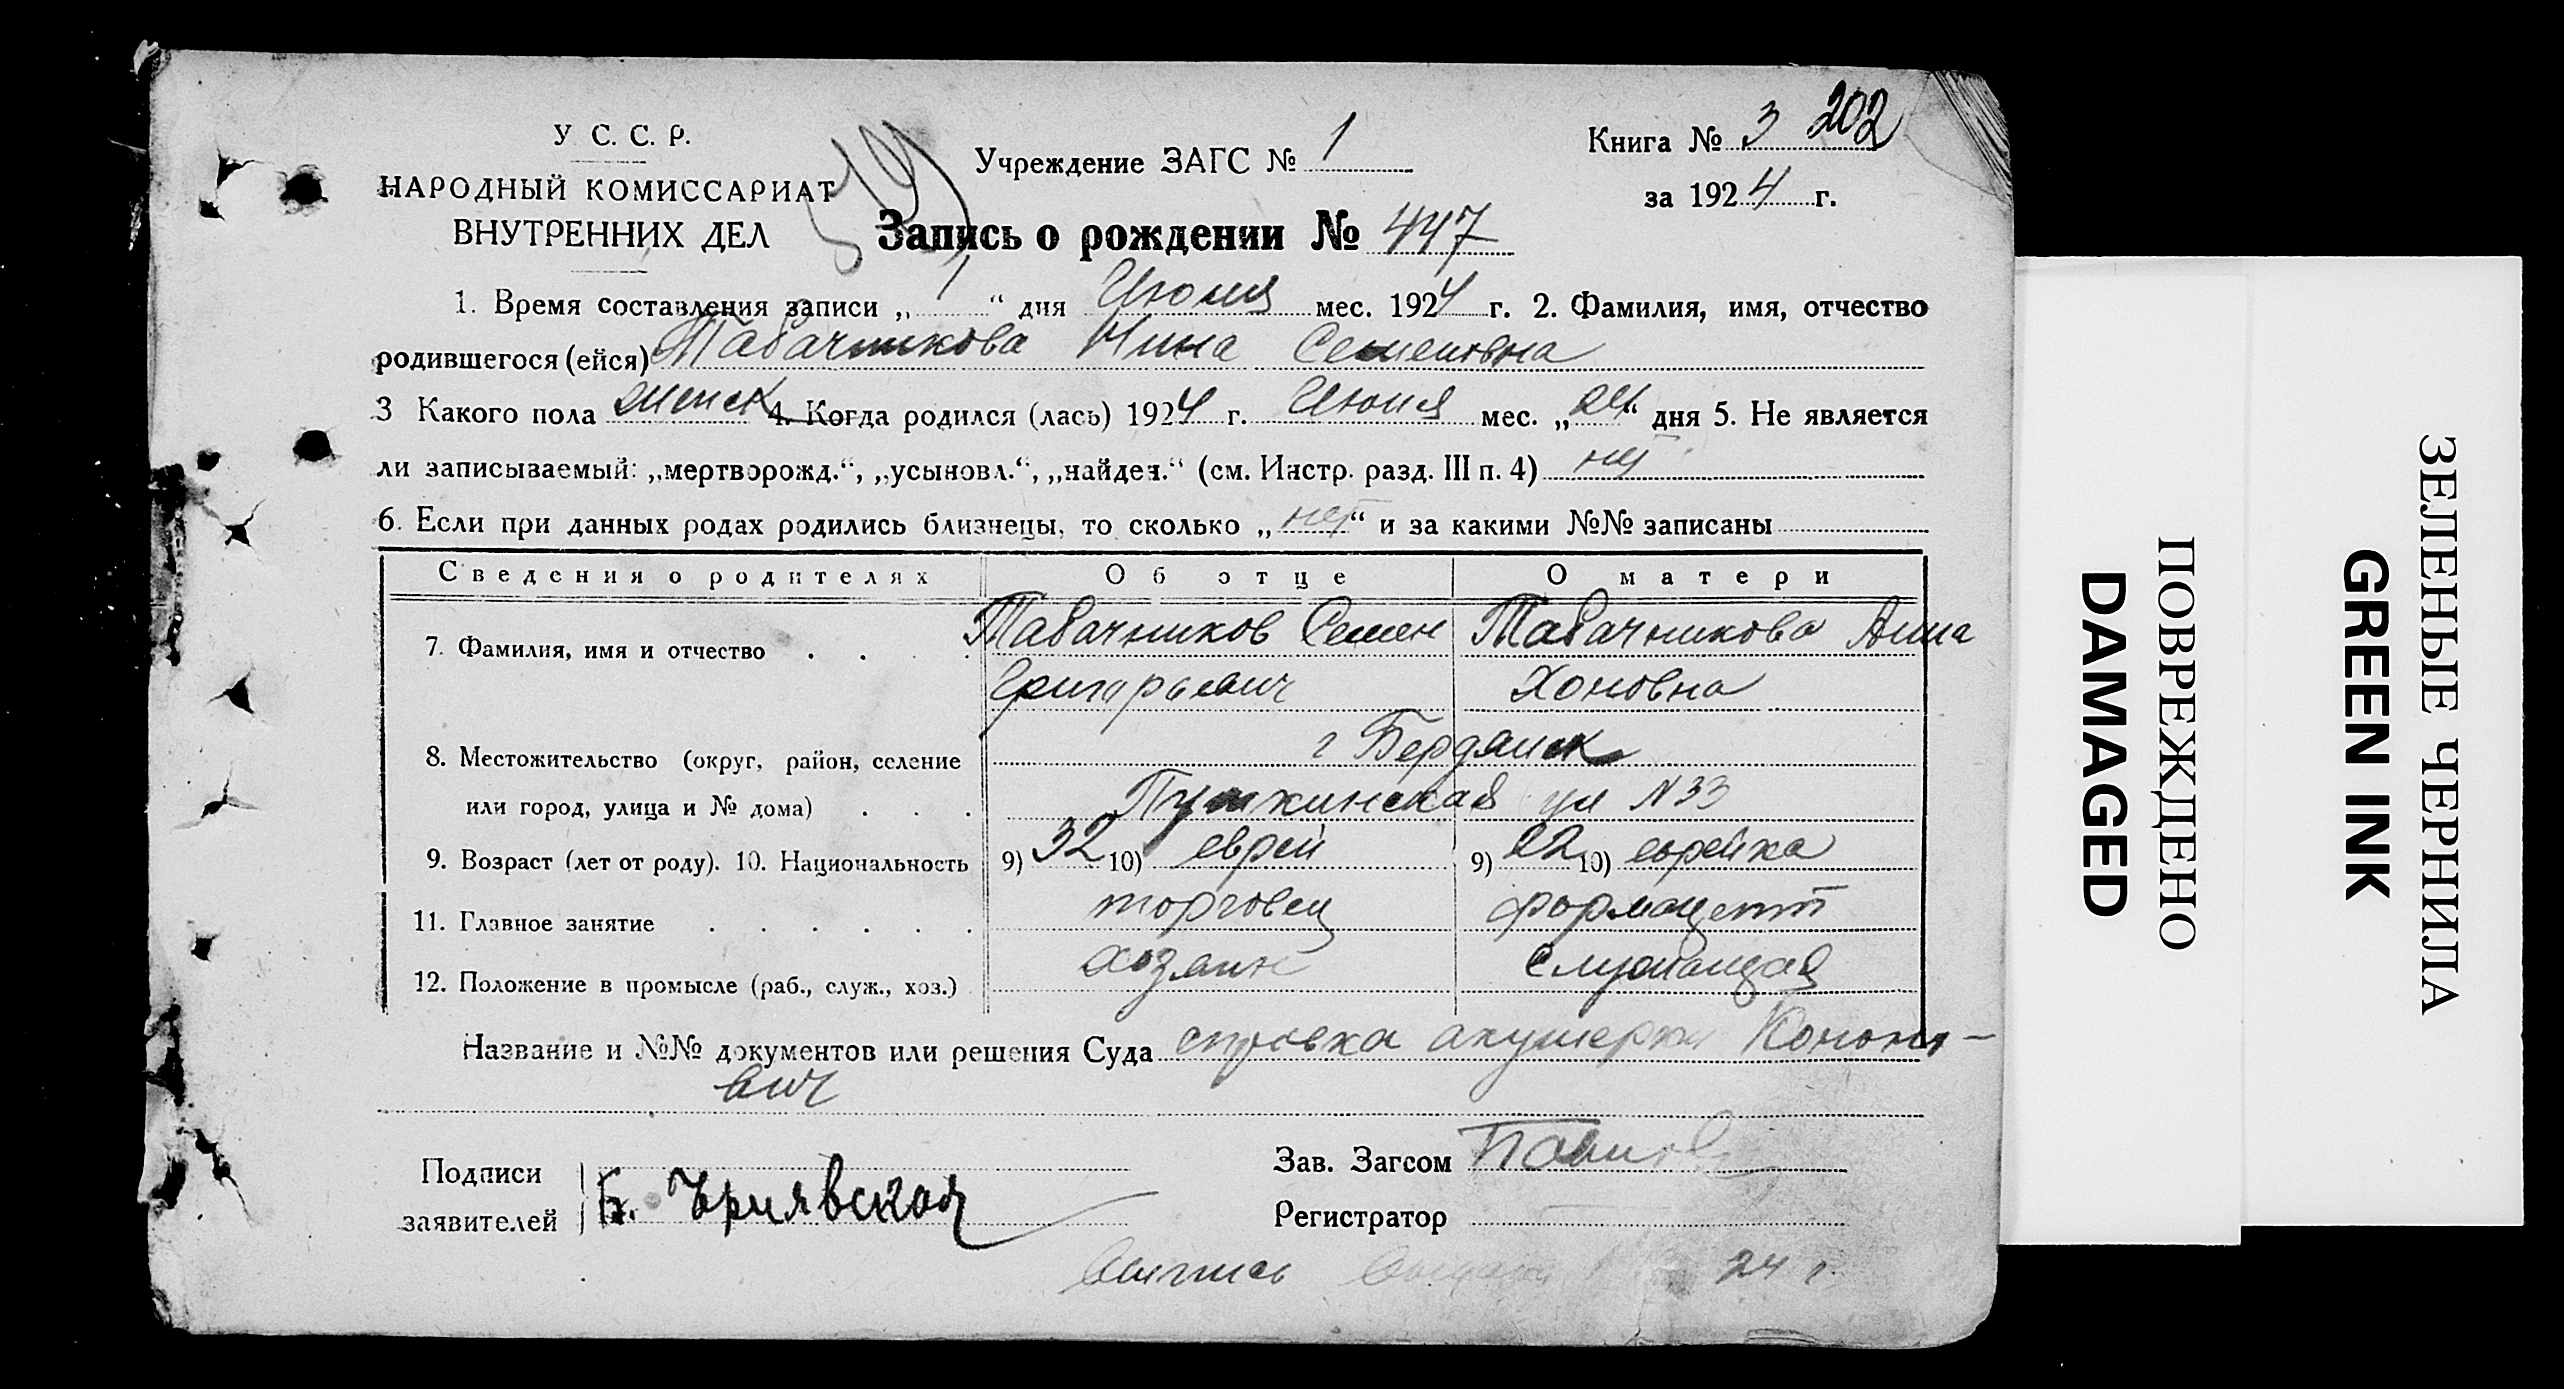 У. С. С. Р.
НАРОДНЫЙ КОМИССАРИАТ
ВНУТРЕННИХ ДЕЛ
Учреждение ЗАГС № 1
Книга № 3 202
за 1924 г.
Запись о рождении № 447
1. Время составления записи „ 1 “ дня Июля мес. 1924 г. 2. Фамилия, имя, отчество
родившегося (ейся) Табачникова Нина Семеновна
3 Какого пола женск 4. Когда родился (лась) 1924 г. Июня мес. „24“ дня 5. Не является
ли записываемый: „мертворожд.“, „усыновл.“, „найден.“ (см. Инстр. разд. III п. 4) нет
6. Если при данных родах родились близнецы, то сколько „нет“ и за какими №№ записаны
Сведения о родителях Об отце О матери
7. Фамилия, имя и отчество . . . . Табачников Семен Табачникова Анна
Григорьевич Хоновна
8. Местожительство (округ, район, селение г Бердянск
или город, улица и № дома) . . . Пушкинская ул N 33
9. Возраст (лет от роду). 10. Национальность 9) 32 10) еврей 9) 22 10) еврейка
11. Главное занятие . . . . . . торговец фармацепт
12. Положение в промысле (раб., служ., хоз.) хозяин служащая
Название и №№ документов или решения Суда справка акушерки Кононо-
вич
Подписи
заявителей
Б.
Зав. Загсом
Регистратор
Выпись 24 г.
ПОВРЕЖДЕНО
DAMAGED
ЗЕЛЕНЫЕ ЧЕРНИЛА
GREEN INK